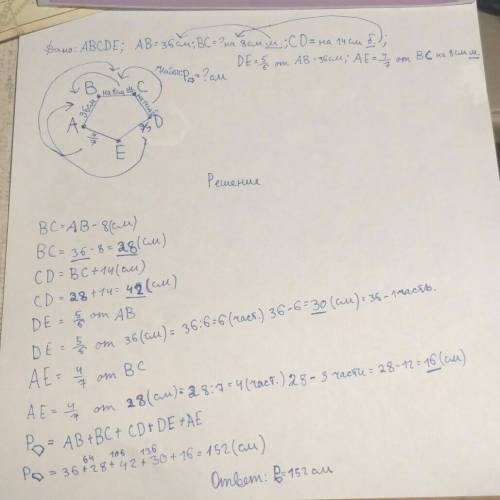 Дано: ABCDE; AB=36см; BC=? на 8см м.; CD= на 14см б.;
DE=5/6 от AB=36см; AE=4/7 от BC на 8см м.
Найти P=?см
B на 8см м. C
36см на 14см б.
A D
4/7 5/6
E
Решения
BC=AB-8(см)
BC=36-8=28(см)
CD=BC+14(см)
CD=28+14=42(см)
DE=5/6 от AB
DE=5/6 от 36(см)=36:6=6(част.) 36-6=30(см)=36-1часть.
AE=4/7 от BC
AE=4/7 от 28(см)=28:7=4(част.) 28-3 части=28-12=16(см)
P=AB+BC+CD+DE+AE
64 106 136
P=36+28+42+30+16=152(см)
Ответ: P=152см